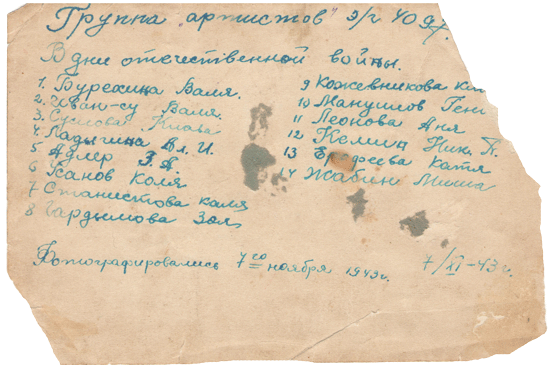 Группа "артистов" э/г 4097.
В дни отечественной войны.
1. Бурехина Валя.
2. Иван-су Валя.
3. Суслова Клава
4. Ладыгина Ал. И.
5 Адлер Г. А.
6 Усанов Коля
7 Станистова Каля
8 Гардымова Зоя
9 Кожевникова
10 Манушлов Ген
11 Леонова Аня
12 Келлин Ник. П.
13 Катя
14 Жабин Миша
Фотографировались 7го ноября 1943 г.
7/XI-43 г.